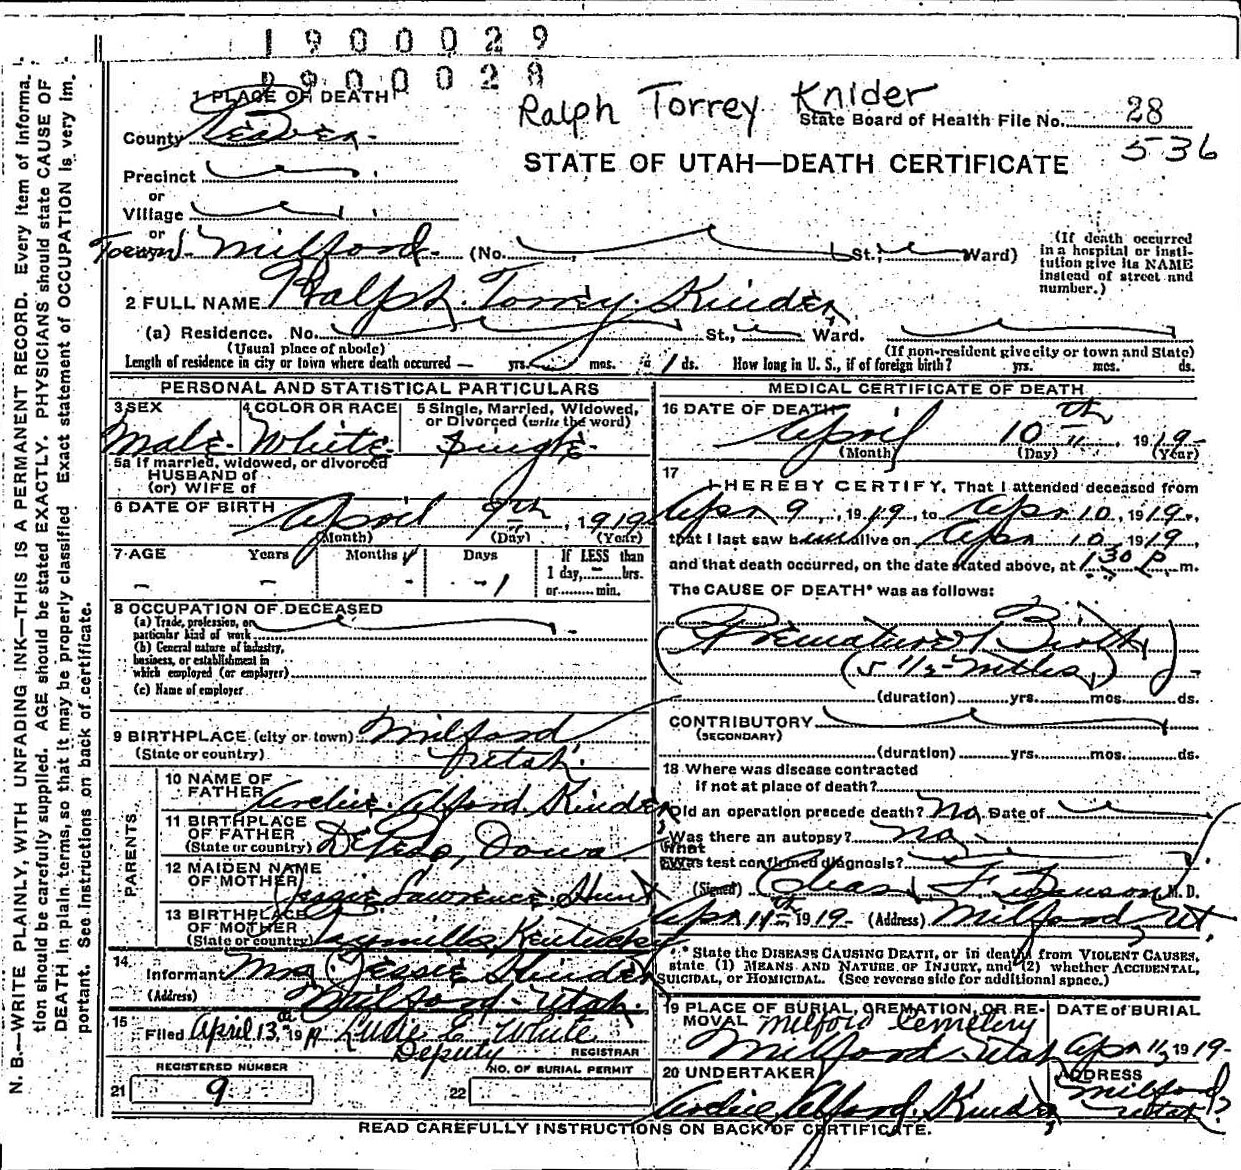 1900029
1900028
Ralph Torrey Knider
1 PLACE OF DEATH
County Beaver
State Board of Health File No. 28
536
STATE OF UTAH—DEATH CERTIFICATE
Precinct
or
Village
or
Town Milford. (No. St.; Ward)
(If death occurred in a hospital or insti-
tution give its NAME
instead of street and
number.)
2 FULL NAME Ralph. Torrey. Kinder
(a) Residence. No. St., Ward.
(Usual place of abode) (If non-resident give city or town and State)
Length of residence in city or town where death occurred — yrs. mos. 1 ds. How long in U. S., if of foreign birth? yrs. mos. ds.
PERSONAL AND STATISTICAL PARTICULARS
3 SEX Male.
4 COLOR OR RACE White.
5 Single, Married, Widowed,
or Divorced (write the word)
Single.
5a If married, widowed, or divorced
HUSBAND of
(or) WIFE of
6 DATE OF BIRTH April 9th, 1919
(Month) (Day) (Year)
7 AGE Years Months Days If LESS than
1 day, — hrs.
or — min.
- - - 1
8 OCCUPATION OF DECEASED
(a) Trade, profession, or
particular kind of work
(b) General nature of industry,
business, or establishment in
which employed (or employer)
(c) Name of employer
9 BIRTHPLACE (city or town) Milford
(State or country) Utah.
PARENTS
10 NAME OF
FATHER Archie. Alford. Kinder
11 BIRTHPLACE
OF FATHER
(State or country) Iowa
12 MAIDEN NAME
OF MOTHER Jessie Lawrence. Hunt
13 BIRTHPLACE
OF MOTHER
(State or country) Kentucky
14 Informant Mrs Jessie Kinder
(Address) Milford - Utah.
15 Filed April 13, 19 19 E. White
Deputy REGISTRAR
REGISTERED NUMBER
21 9
NO. OF BURIAL PERMIT
22
MEDICAL CERTIFICATE OF DEATH
16 DATE OF DEATH
April 10th, 1919
(Month) (Day) (Year)
17
I HEREBY CERTIFY, That I attended deceased from
Apr 9, 1919, to Apr 10, 1919.,
that I last saw him alive on Apr 10, 1919,
and that death occurred, on the date stated above, at 1:30 P. m.
The CAUSE OF DEATH* was as follows:
(Premature Birth)
(5 1/2
(duration) yrs. mos. ds.
CONTRIBUTORY
(SECONDARY)
(duration) yrs. mos. ds.
18 Where was disease contracted
if not at place of death?
Did an operation precede death? No, Date of
Was there an autopsy? No,
What
Was test confirmed diagnosis?
(Signed) M. D.
Apr 11th 1919- (Address) Milford, Ut.
* State the DISEASE CAUSING DEATH, or in deaths from VIOLENT CAUSES,
state (1) MEANS AND NATURE OF INJURY, and (2) whether ACCIDENTAL,
SUICIDAL, or HOMICIDAL. (See reverse side for additional space.)
19 PLACE OF BURIAL, CREMATION, OR RE-
MOVAL Milford Cemetery
Milford - Utah
DATE OF BURIAL
Apr 11, 1919-
20 UNDERTAKER
Archie Alford. Kinder,
ADDRESS
Milford,
Utah.
READ CAREFULLY INSTRUCTIONS ON BACK OF CERTIFICATE.
N. B.—WRITE PLAINLY, WITH UNFADING INK—THIS IS A PERMANENT RECORD. Every item of informa-
tion should be carefully supplied. AGE should be stated EXACTLY. PHYSICIANS should state CAUSE OF
DEATH in plain terms, so that it may be properly classified. Exact statement of OCCUPATION is very im-
portant. See instructions on back of certificate.